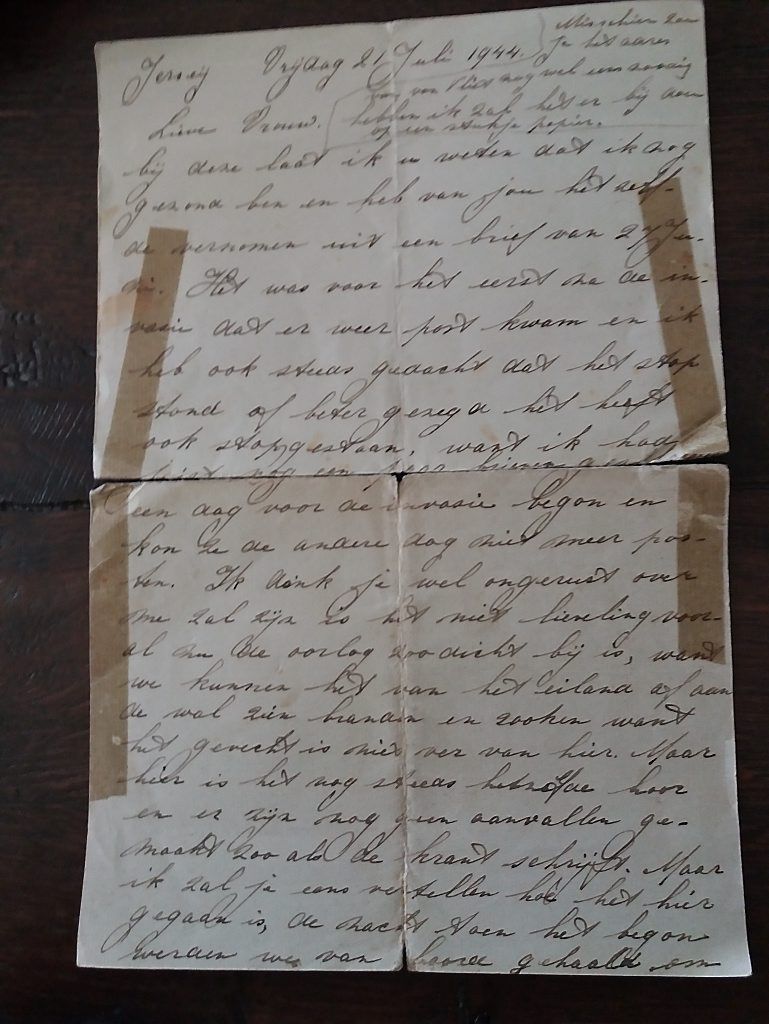 Misschien zou
je het adres
Jersey Vrijdag 21 Juli 1944.
van Vliet nog wel eens noodig
Lieve Vrouw. hebben ik zal het er bij doen
op een stukje papier.
bij deze laat ik u weten dat ik nog
gezond ben en heb van jou het zelf-
de vernomen uit een brief van 27 Ju-
ni. Het was voor het eerst na de in-
vasie dat er weer post kwam en ik
heb ook steeds gedacht dat het stop
stond of beter gezegd het heeft
ook stopgestaan, want ik had
juist nog een paar brieven
een dag voor de invasie begon en
kon ze de andere dag niet meer pos-
ten. Ik denk je wel ongerust over
me zal zijn is het niet lieveling voor-
al nu de oorlog zoo dicht bij is, want
we kunnen het van het eiland af aan
de wal zien branden en rooken want
het gevecht is niet ver van hier. Maar
hier is het nog steeds hetzelfde hoor
en er zijn nog geen aanvallen ge-
maakt zoo als de krant schrijft. Maar
ik zal je eens vertellen hoe het hier
gegaan is, de nacht toen het begon
werden we van boord gehaald om